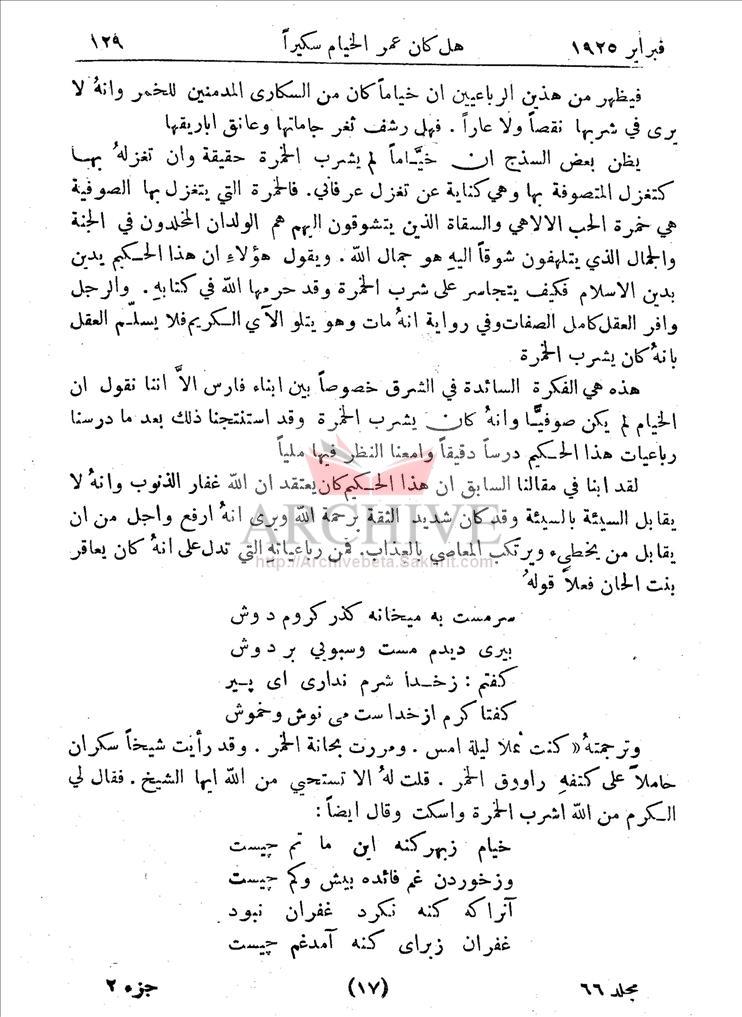 فبراير ١٩٢٥ هل كان عمر الخيام سكيراً ١٢٩
فيظهر من هذين الرباعيين ان خياماً كان من السكارى المدمنين للخمر وانهُ لا
يرى في شربها نقصاً ولا عاراً . فهل رشف ثغر جاماتها وعانق اباريقها
يظن بعض السذج ان خيَّاماً لم يشرب الخمرة حقيقة وان تغزلهُ بها
كتغزل المتصوفة بها وهي كناية عن تغزل عرفاني. فالخمرة التي يتغزل بها الصوفية
هي خمرة الحب الالاهي والسقاة الذين يتشوقون اليهم هم الولدان المخلدون في الجنة
والجمال الذي يتلهفون شوقاً اليهِ هو جمال الله . ويقول هؤلاءِ ان هذا الحكيم يدين
بدين الاسلام فكيف يتجاسر على شرب الخمرة وقد حرمها الله في كتابهِ . والرجل
وافر العقل كامل الصفات وفي رواية انهُ مات وهو يتلو الآي الكريم فلا يسلّم العقل
بانهُ كان يشرب الخمرة
هذه هي الفكرة السائدة في الشرق خصوصاً بين ابناء فارس الاَّ اننا نقول ان
الخيام لم يكن صوفيًّا وانهُ كان يشرب الخمرة وقد استنتجنا ذلك بعد ما درسنا
رباعيات هذا الحكيم درساً دقيقاً وامعنا النظر فيها ملياً
لقد ابنا في مقالنا السابق ان هذا الحكيم كان يعتقد ان الله غفار الذنوب وانهُ لا
يقابل السيئة بالسيئة وقد كان شديد الثقة برحمة الله ويرى انهُ ارفع واجل من ان
يقابل من يخطيء ويرتكب المعاصي بالعذاب. فمن رباعياته التي تدل على انهُ كان يعاقر
بنت الحان فعلاً قولهُ
سرمست به ميخانه كذر كروم دوش
بيري ديدم مست وسبويي بر دوش
كفتم : زخدا شرم نداري اي پير
كفتا كرم از خداست مي نوش وخموش
وترجمتهُ « كنت ثملا ليلة امس . ومررت بحانة الخمر . وقد رأيت شيخاً سكران
حاملاً على كتفهِ راووق الخمر . قلت لهُ الا تستحيي من الله ايها الشيخ . فقال لي
الكرم من الله اشرب الخمرة واسكت وقال ايضاً :
خيام زبهر كنه اين ما تم چيست
وزخوردن غم فائده بيش وكم چيست
آنرا كه كنه نكرد غفران نبود
غفران زبراي كنه آمدغم چيست
مجلد ٦٦ (١٧) جزء ٢
ARCHIVE
http://Archivebeta.Sakhrit.com